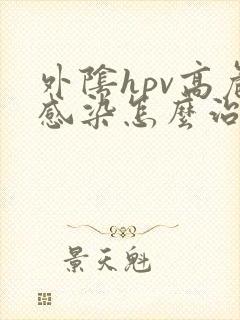 外陰hpv高危
感染怎麼治
景天魁